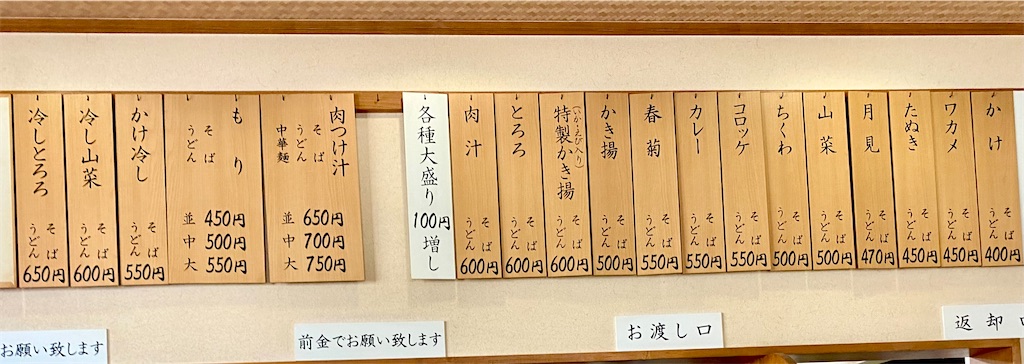 かけ
そば
うどん
400円
ワカメ
そば
うどん
450円
たぬき
そば
うどん
450円
月見
そば
うどん
470円
山菜
そば
うどん
500円
ちくわ
そば
うどん
500円
コロッケ
そば
うどん
550円
カレー
そば
うどん
550円
春菊
そば
うどん
550円
かき揚
そば
うどん
500円
特製かき揚
(いか・えび入り)
そば
うどん
600円
とろろ
そば
うどん
600円
肉汁
そば
うどん
600円
各種大盛り
100円
増し
肉つけ汁
そば
うどん
中華麺
並 650円
中 700円
大 750円
もり
そば
うどん
並 450円
中 500円
大 550円
かけ冷し
そば
うどん
550円
冷し山菜
そば
うどん
600円
冷しとろろ
そば
うどん
650円
お願い致します
前金でお願い致します
お渡し口
返却